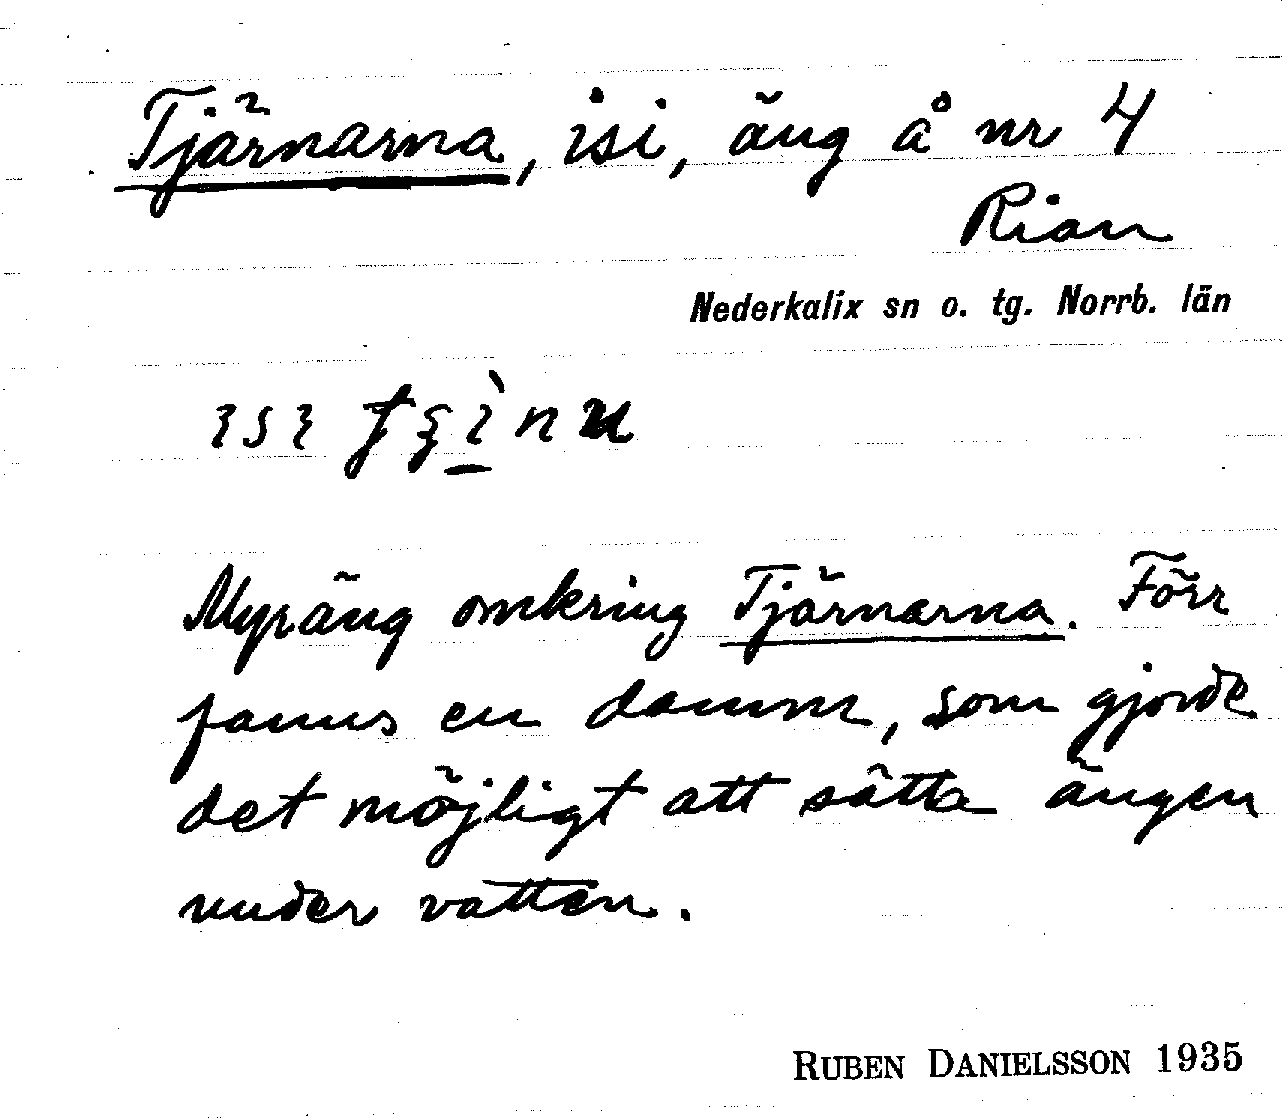 Tjärnarna, isi, äng å nr 4
Rian
Nederkalix sn o. tg. Norrb. län
Myräng omkring Tjärnarna. Förr
fanns en damm, som gjorde
det möjligt att sätta ängen
under vatten.
RUBEN DANIELSSON 1935